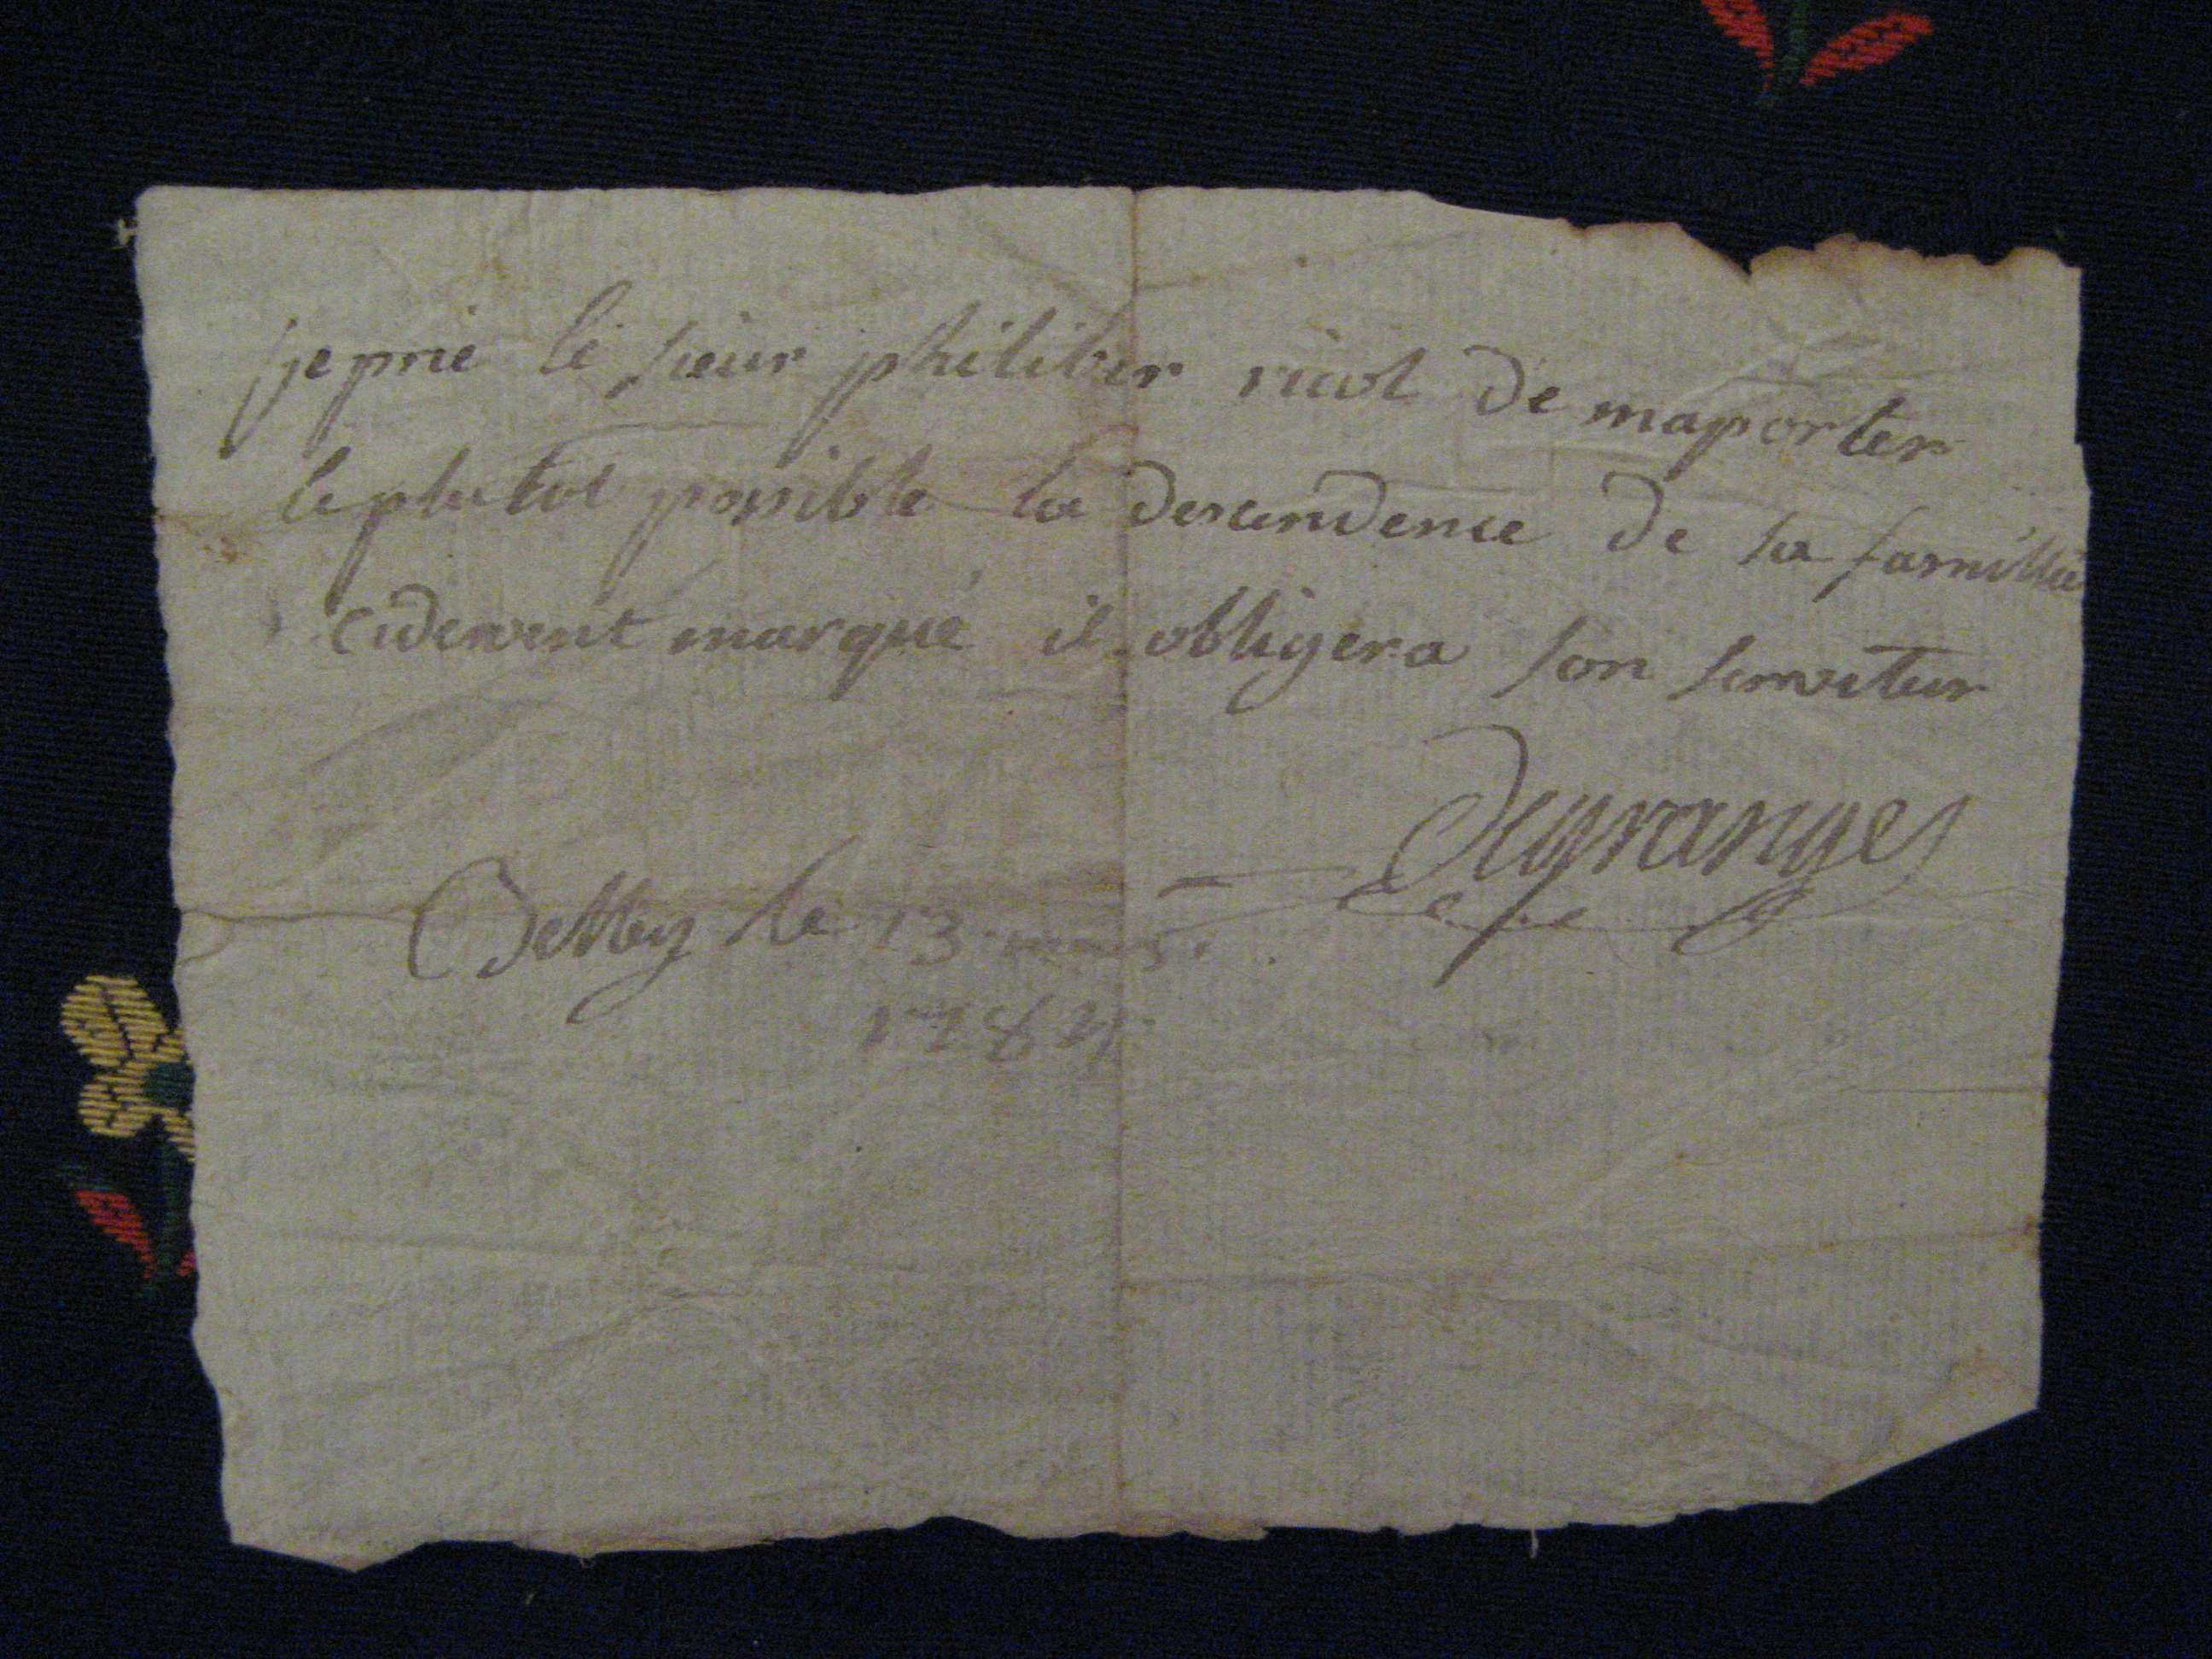 je prie le sieur philiber riwt de maporter
le plutot possible la descendence de sa famille
cidevent marqué il obligera son serviteur
Degranges
Belley le 13 mars
1784